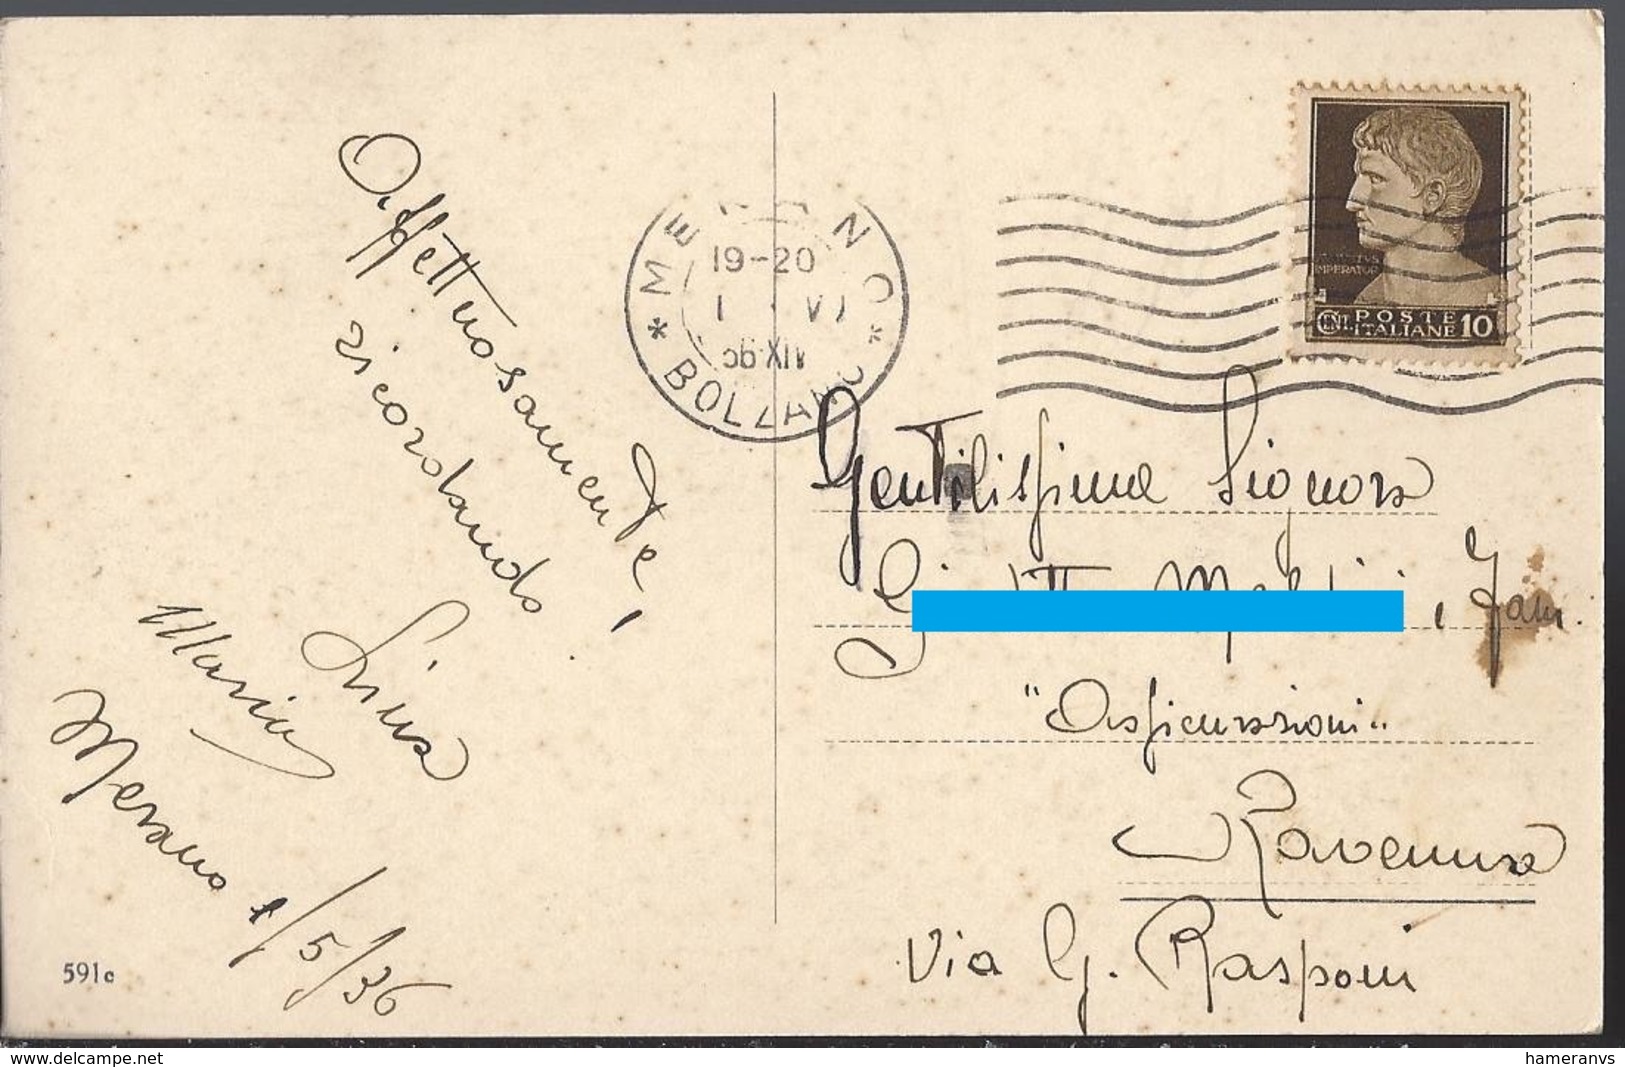 Affettuosamente,
ricordando
Lina
Maria
Merano 1/5/36
591c
MERANO
19-20
1 · VI
36 XIV
* BOLZANO *
IMPERATOR
CENT. POSTE
ITALIANE 10
Gentilissima Signora
, Fam.
"Assicurazioni"
Ravenna
Via G. Rasponi
www.delcampe.net
hameranvs